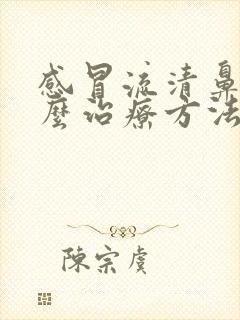 感冒流清鼻
麼治療方法
陳宗虞